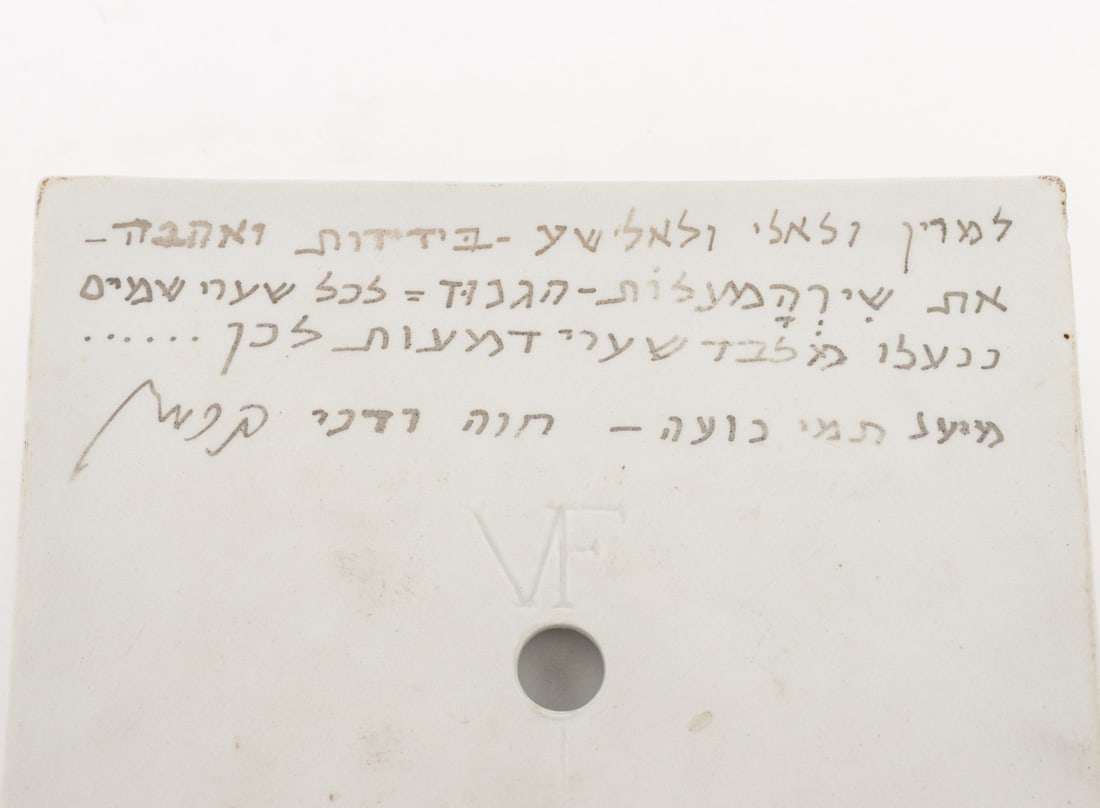 למרין ולאלי ולאלישע - בידידות ואהבה -
את שִׁירְהָמַעלוֹת - הגנוּז = לכל שערי שמים
ננעלו מלבד שערי דמעות לכן ......
מיעל תמי נועה - חוה ודני
VF